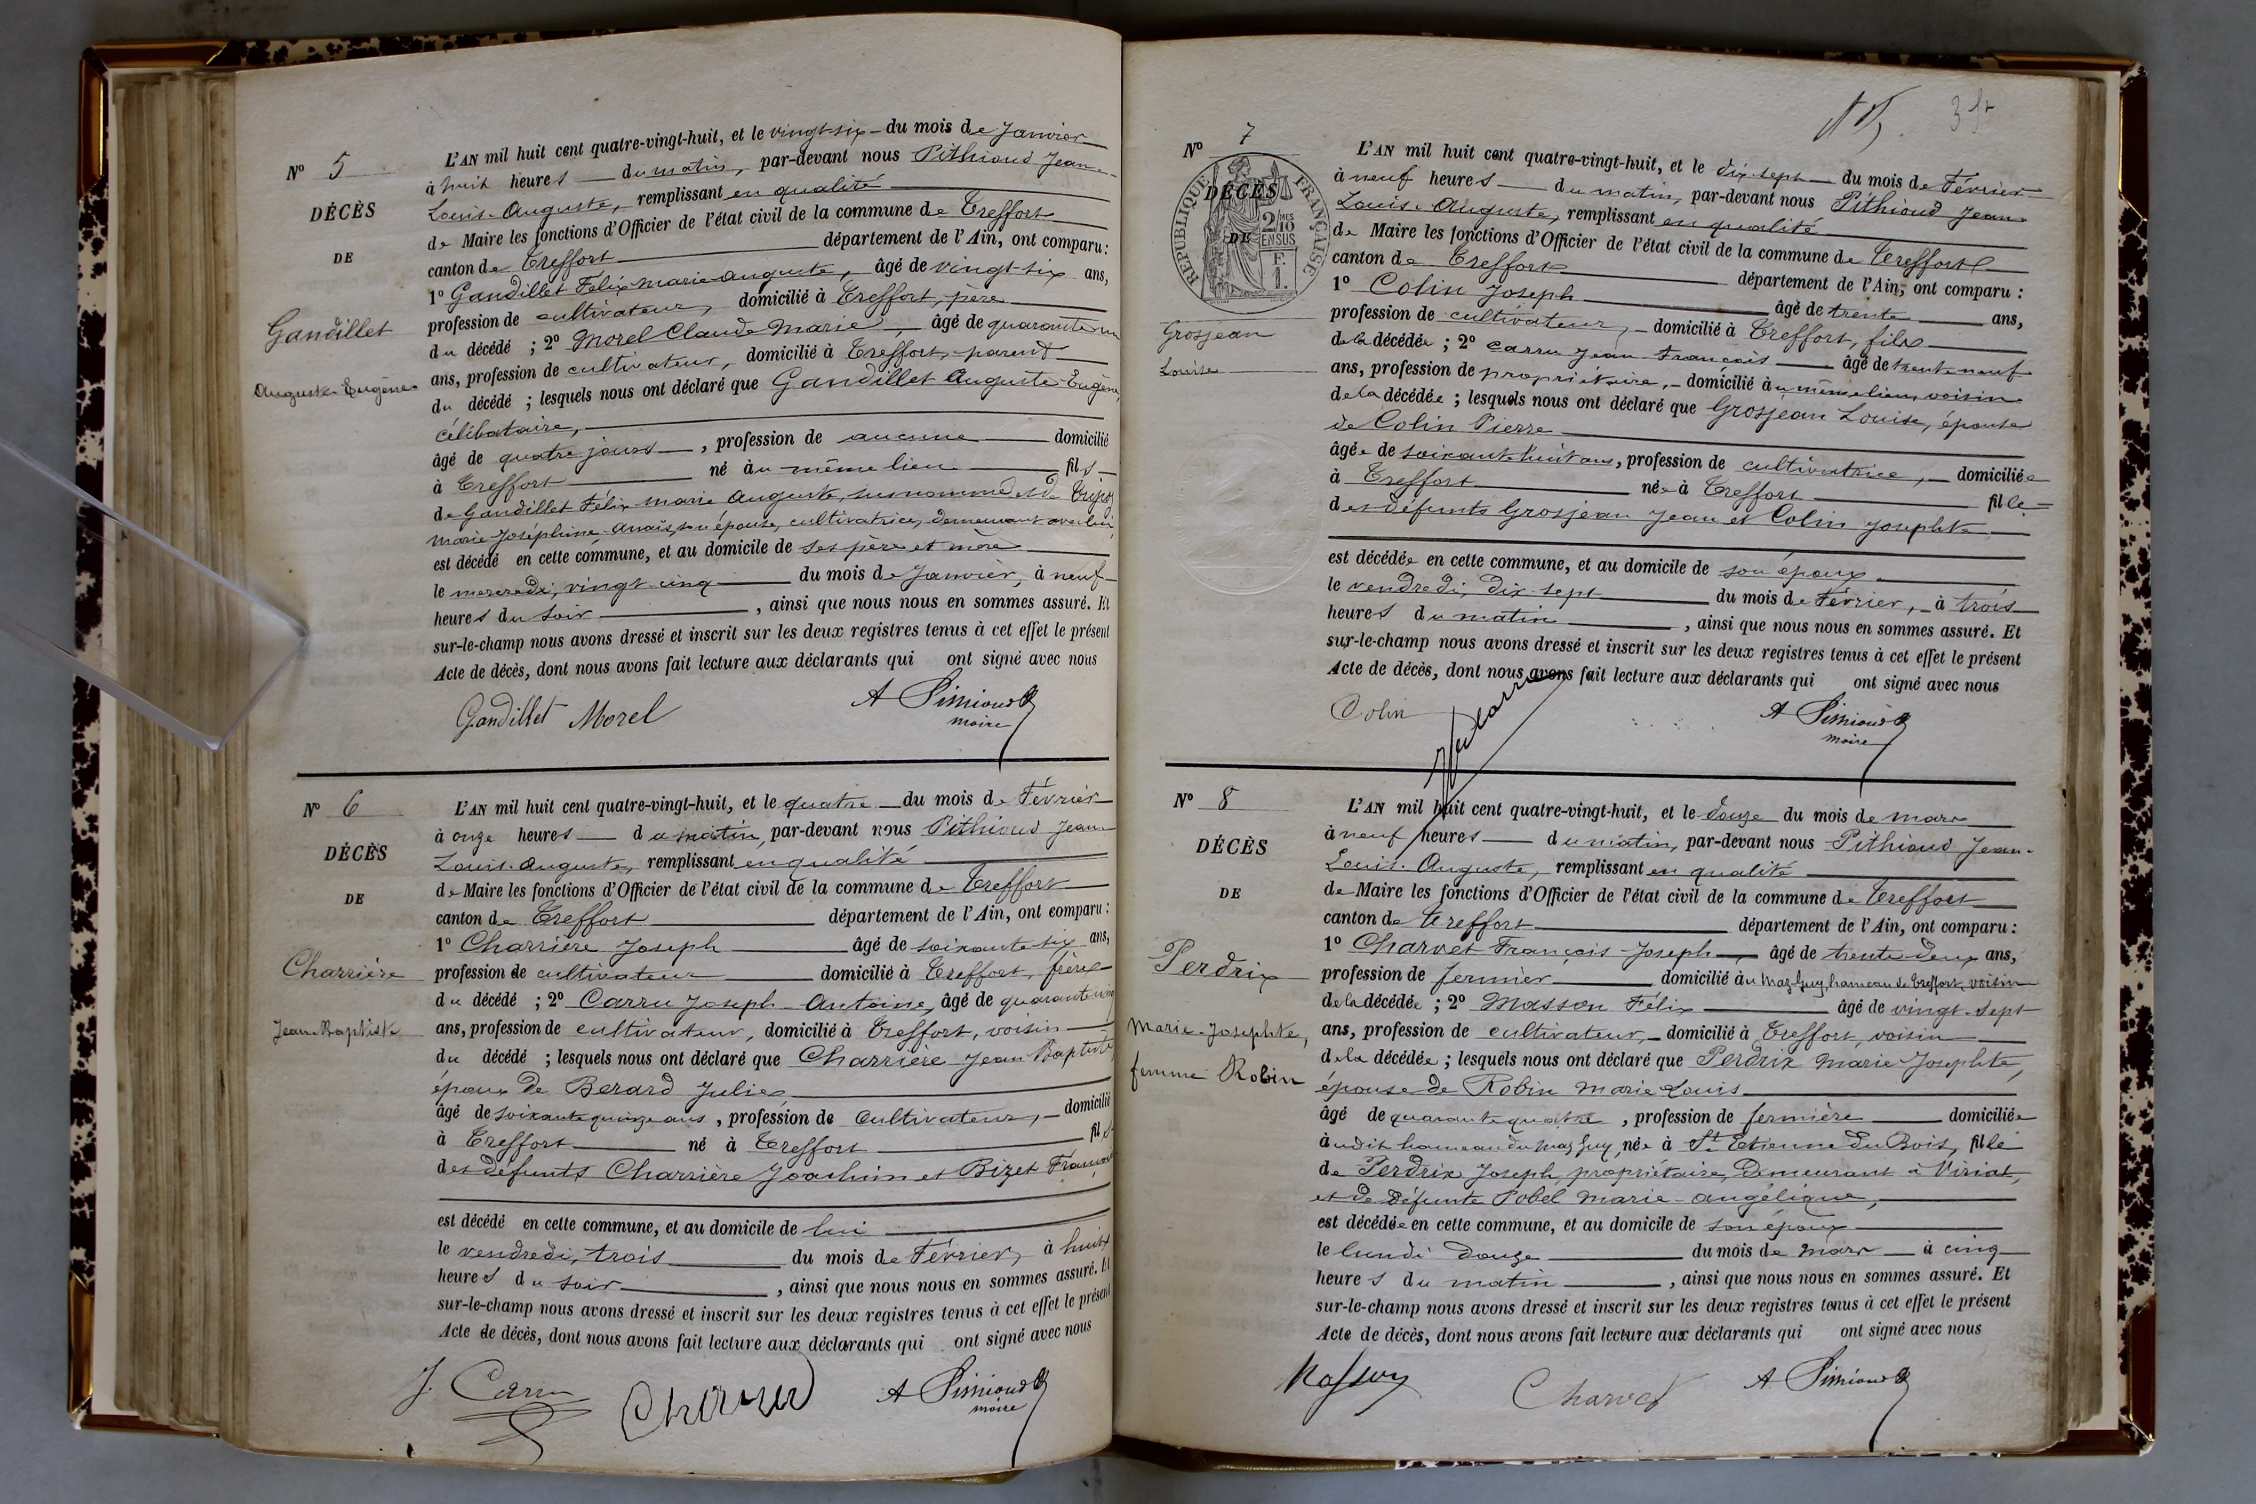 N° 5
DÉCÈS
DE
Gandillet
Auguste Eugène
L'AN mil huit cent quatre-vingt-huit, et le vingt-six du mois de Janvier
à huit heures du matin, par-devant nous Pithioud Jean-
Louis-Auguste, remplissant en qualité
de Maire les fonctions d'Officier de l'état civil de la commune de Treffort
canton de Treffort département de l'Ain, ont comparu :
1° Gandillet Félix Marie Auguste, âgé de vingt-six ans,
profession de cultivateur, domicilié à Treffort, père
du décédé ; 2° Morel Claude Marie, âgé de quarante un
ans, profession de cultivateur, domicilié à Treffort, parent
du décédé ; lesquels nous ont déclaré que Gandillet Auguste-Eugène,
célibataire,
âgé de quatre jours, profession de aucune domicilié
à Treffort né au même lieu fils
de Gandillet Félix Marie Auguste, susnommé et de
Marie Joséphine Anaïs, son épouse, cultivatrice, demeurant avec lui,
est décédé en cette commune, et au domicile de ses père et mère
le mercredi, vingt-cinq du mois de Janvier, à neuf
heures du soir, ainsi que nous nous en sommes assuré. Et
sur-le-champ nous avons dressé et inscrit sur les deux registres tenus à cet effet le présent
Acte de décès, dont nous avons fait lecture aux déclarants qui ont signé avec nous
Gandillet Morel A Pithioud
maire
N° 6
DÉCÈS
DE
Charrière
Jean-Baptiste
L'AN mil huit cent quatre-vingt-huit, et le quatre du mois de Février
à onze heures du matin, par-devant nous Pithioud Jean-
Louis-Auguste, remplissant en qualité
de Maire les fonctions d'Officier de l'état civil de la commune de Treffort
canton de Treffort département de l'Ain, ont comparu :
1° Charrière Joseph âgé de soixante-six ans,
profession de cultivateur domicilié à Treffort, frère
du décédé ; 2° Carru Joseph-Antoine, âgé de quarante cinq
ans, profession de cultivateur, domicilié à Treffort, voisin
du décédé ; lesquels nous ont déclaré que Charrière Jean Baptiste
époux de Berard Julie,
âgé de soixante quinze ans, profession de Cultivateur, domicilié
à Treffort né à Treffort fils
des défunts Charrière Joachim et Bizet
est décédé en cette commune, et au domicile de lui
le vendredi, trois du mois de Février, à huit
heures du soir, ainsi que nous nous en sommes assuré. Et
sur-le-champ nous avons dressé et inscrit sur les deux registres tenus à cet effet le présent
Acte de décès, dont nous avons fait lecture aux déclarants qui ont signé avec nous
J. Carru A Pithioud
maire
N° 7
RÉPUBLIQUE FRANÇAISE
2/10 MES
EN SUS
F.
1.
DÉCÈS
DE
Grosjean
Louise
L'AN mil huit cent quatre-vingt-huit, et le dix-sept du mois de Février
à neuf heures du matin, par-devant nous Pithioud Jean-
Louis-Auguste, remplissant en qualité
de Maire les fonctions d'Officier de l'état civil de la commune de Treffort
canton de Treffort département de l'Ain, ont comparu :
1° Colin Joseph âgé de trente ans,
profession de cultivateur, domicilié à Treffort, fils
de la décédée ; 2° Carru Jean-François âgé de trente-neuf
ans, profession de propriétaire, domicilié au même lieu, voisin
de la décédée ; lesquels nous ont déclaré que Grosjean Louise, épouse
de Colin Pierre
âgée de soixante huit ans, profession de cultivatrice, domiciliée
à Treffort née à Treffort fille
des défunts Grosjean Jean et Colin Josephte
est décédée en cette commune, et au domicile de son époux
le vendredi, dix-sept du mois de Février, à trois
heures du matin, ainsi que nous nous en sommes assuré. Et
sur-le-champ nous avons dressé et inscrit sur les deux registres tenus à cet effet le présent
Acte de décès, dont nous avons fait lecture aux déclarants qui ont signé avec nous
Colin A Pithioud
maire
N° 8
DÉCÈS
DE
Perdrix
Marie-Josephte,
femme Robin
L'AN mil huit cent quatre-vingt-huit, et le douze du mois de mars
à neuf heures du matin, par-devant nous Pithioud Jean-
Louis-Auguste, remplissant en qualité
de Maire les fonctions d'Officier de l'état civil de la commune de Treffort
canton de Treffort département de l'Ain, ont comparu :
1° Charvet François-Joseph, âgé de trente-deux ans,
profession de fermier domicilié au Maz Guy, hameau de Treffort, voisin
de la décédée ; 2° Masson Félix âgé de vingt-sept
ans, profession de cultivateur, domicilié à Treffort, voisin
de la décédée ; lesquels nous ont déclaré que Perdrix Marie Josephte,
épouse de Robin Marie Louis
âgé de quarante quatre, profession de fermière domiciliée
audit hameau du Maz Guy, née à St Etienne du Bois, fille
de Perdrix Joseph, propriétaire, demeurant à Viriat,
et de défunte Pobel Marie-Angélique,
est décédée en cette commune, et au domicile de son époux
le lundi douze du mois de mars à cinq
heures du matin, ainsi que nous nous en sommes assuré. Et
sur-le-champ nous avons dressé et inscrit sur les deux registres tenus à cet effet le présent
Acte de décès, dont nous avons fait lecture aux déclarants qui ont signé avec nous
Masson Charvet A Pithioud